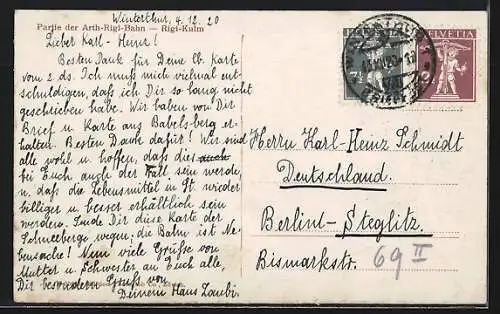 Winterthur, 4.12.20
Partie der Arth-Rigi-Bahn — Rigi-Kulm
Lieber Karl-Heinz!
Besten Dank für Deine lb. Karte
vom 2 ds. Ich muß mich vielmal ent-
schuldigen, daß ich Dir so lang nicht
geschrieben habe. Wir haben von Dir
Brief u. Karte aus Babelsberg er-
halten. Besten Dank dafür! Wir sind
alle wohl u. hoffen, daß dies auch
bei Euch auch der Fall sein werde,
u. daß die Lebensmittel in St. wieder
billiger u. besser erhältlich sein
werden. Sende Dir diese Karte der
Schneeberge wegen; die Bahn ist Ne-
bensache! Nun viele Grüße von
Mutter u. Schwester an Euch alle,
Dir besondern Gruß von
Deinem Hans
HELVETIA
Herrn Karl-Heinz Schmidt
Deutschland.
Berlin-Steglitz.
Bismarckstr. 69 II